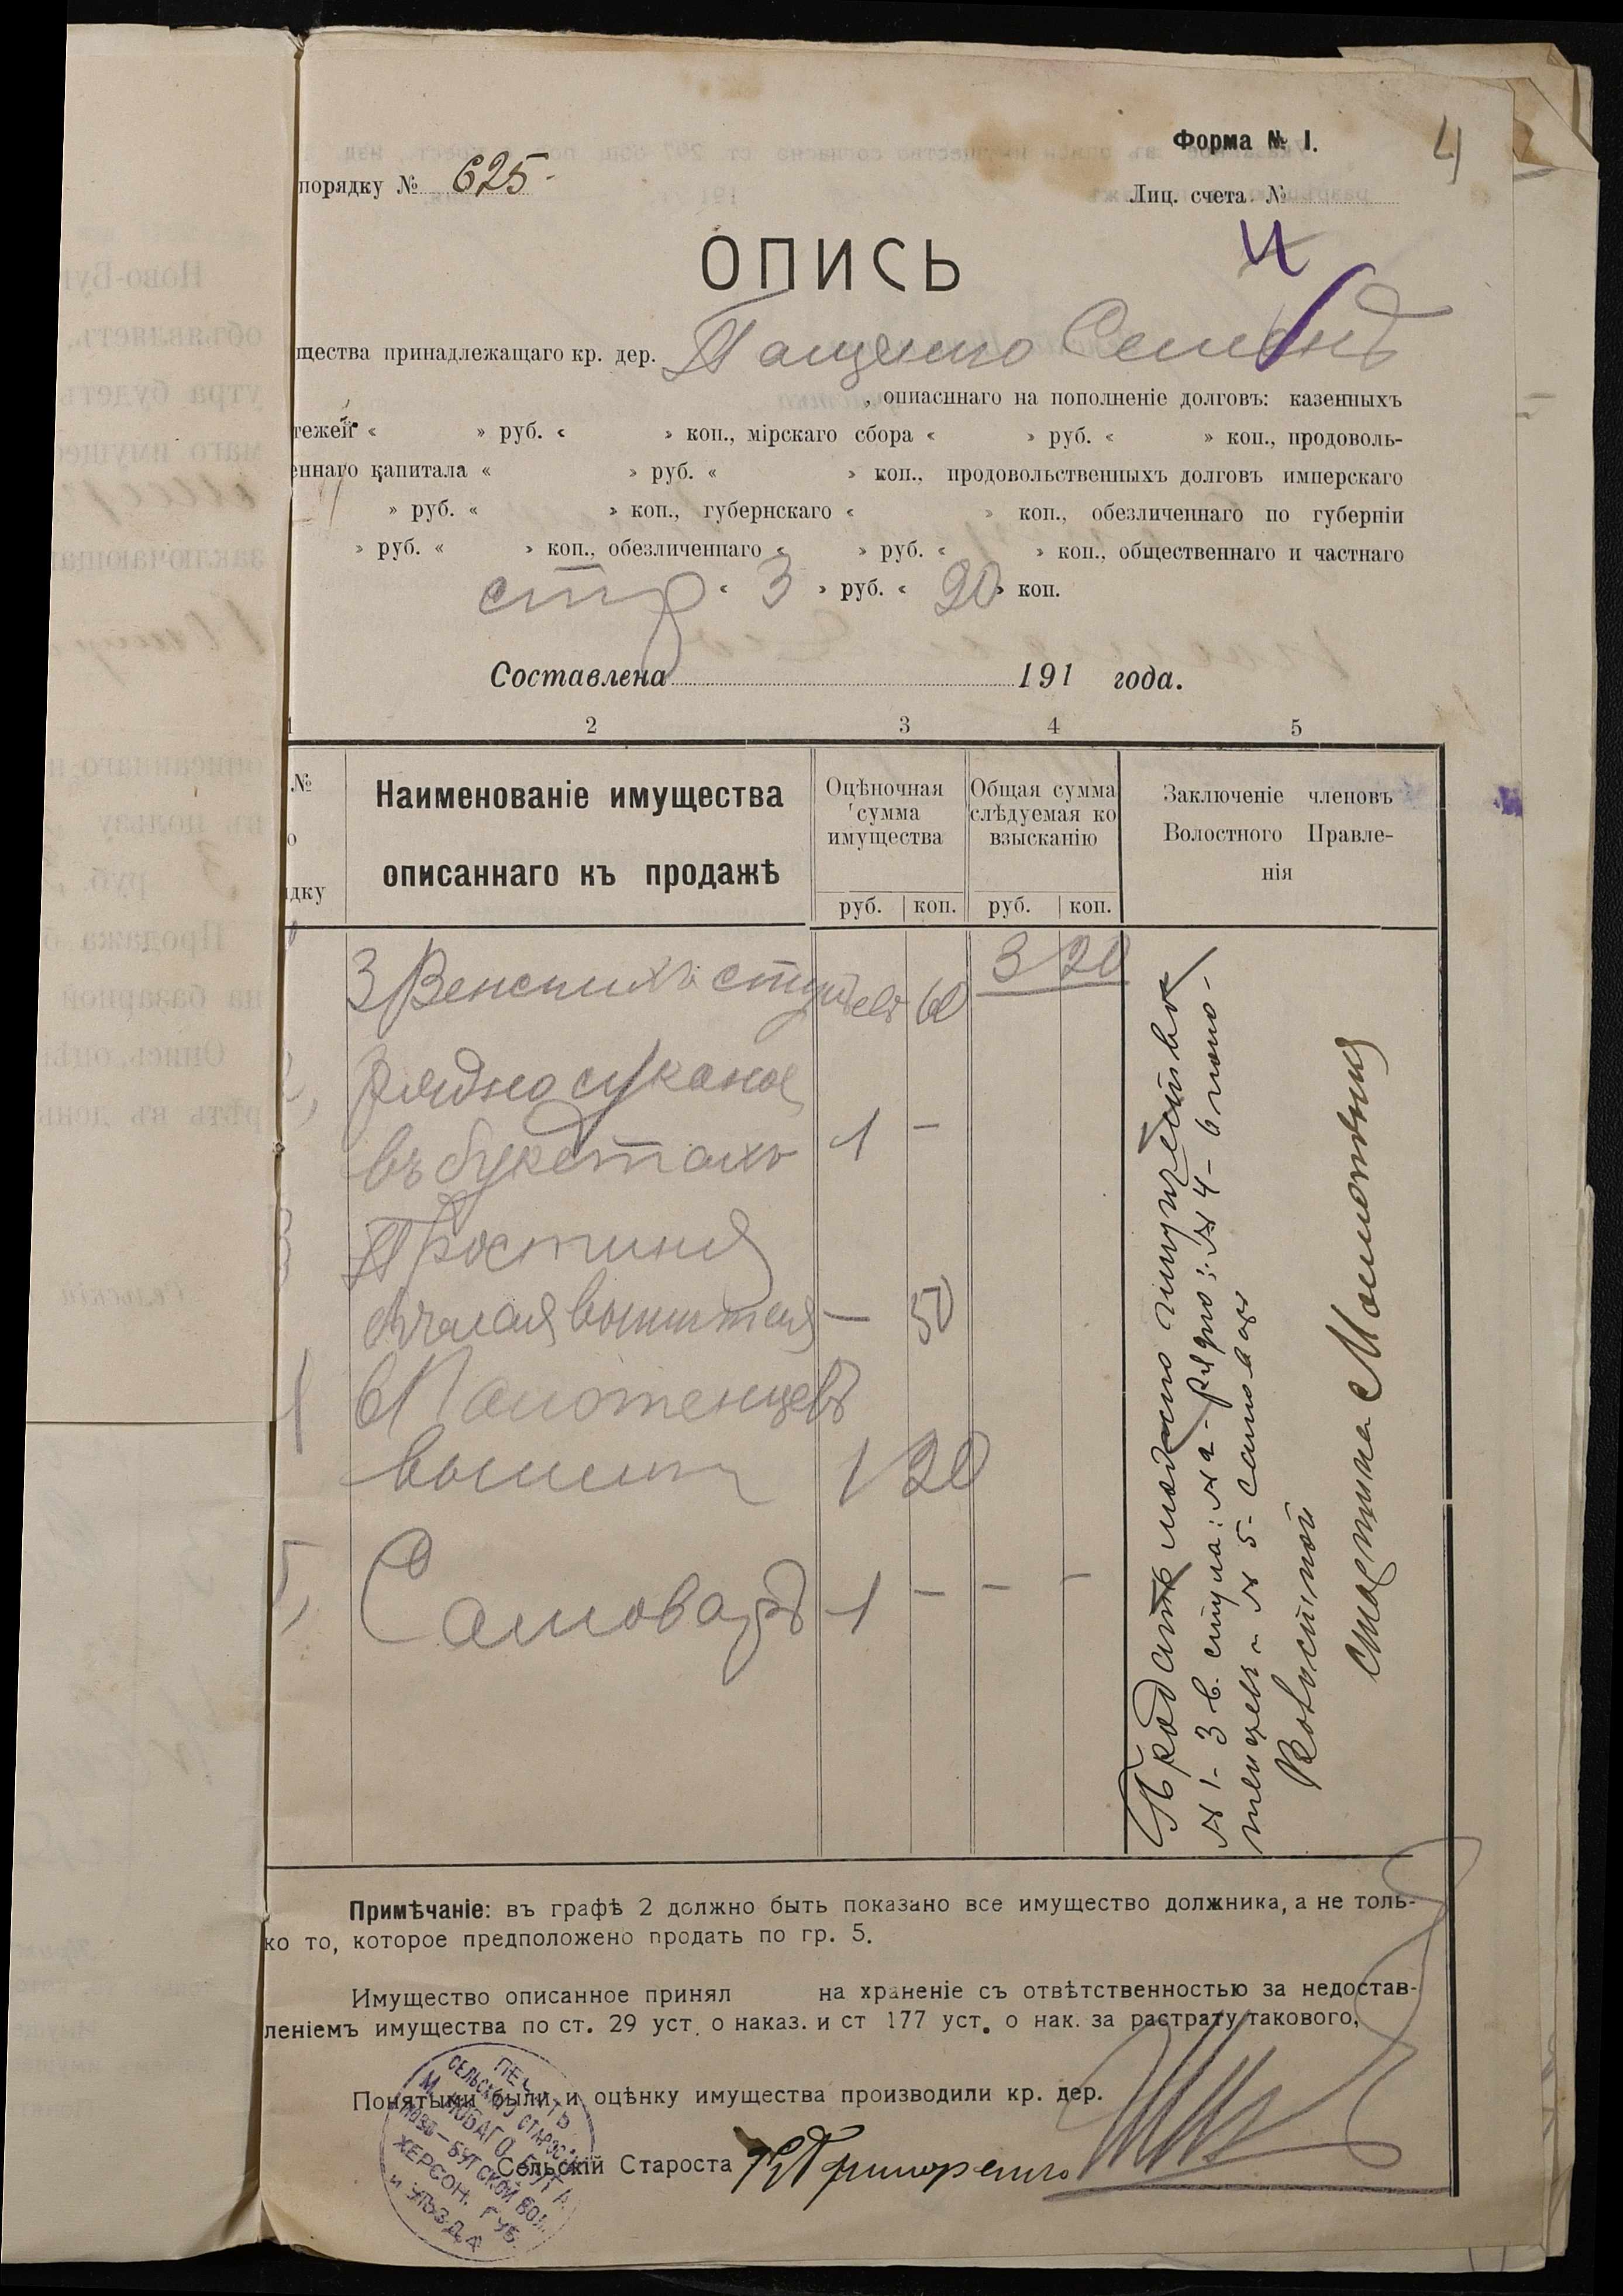 Форма № 1.
4
порядку № 625.
Лиц. счета №
4
ОПИСЬ
щества принадлежащаго кр. дер. Пащенко Семенъ
, описаннаго на пополненіе долговъ: казенныхъ
тежей « » руб. « » коп., мірскаго сбора « » руб. « » коп., продоволь-
еннаго капитала « » руб. « » коп., продовольственныхъ долговъ имперскаго
» руб. « » коп., губернскаго « » коп., обезличеннаго по губерніи
» руб. « » коп., обезличеннаго « » руб. « » коп., общественнаго и частнаго
стр « 3 » руб. « 20 » коп.
Составлена 191 года.
1 2 3 4 5
№
о
ядку
Наименованіе имущества
описаннаго къ продажѣ
Оцѣночная
сумма
имущества
руб. коп.
Общая сумма
слѣдуемая ко
взысканію
руб. коп.
Заключеніе членовъ
Волостного Правле-
нія
3 Венскихъ стульевъ 60 3 20
2, Рядно суконое
въ букетахъ 1 —
3 Простиня
бѣлая вышитая — 50
6 Полотенцевъ
вышит 1 20
5, Самоваръ 1 — — —
Продать можно имущество
№ 1- 3 в. стула: № 2- рядно: № 4- 6 поло-
тенцевъ и № 5- самоваръ
Волостной
старшина
Примѣчаніе: въ графѣ 2 должно быть показано все имущество должника, а не толь-
ко то, которое предположено продать по гр. 5.
Имущество описанное принял на храненіе съ отвѣтственностью за недостав-
леніемъ имущества по ст. 29 уст. о наказ. и ст 177 уст. о нак. за растрату такового,
Понятыми были и оцѣнку имущества производили кр. дер.
Сельскій Староста
ПЕЧАТЬ
СЕЛЬСКАГО СТАРОСТЫ
М. НОВАГО БУГА
НОВО-БУГСКОЙ ВОЛ.
ХЕРСОН. ГУБ.
И УѢЗДА